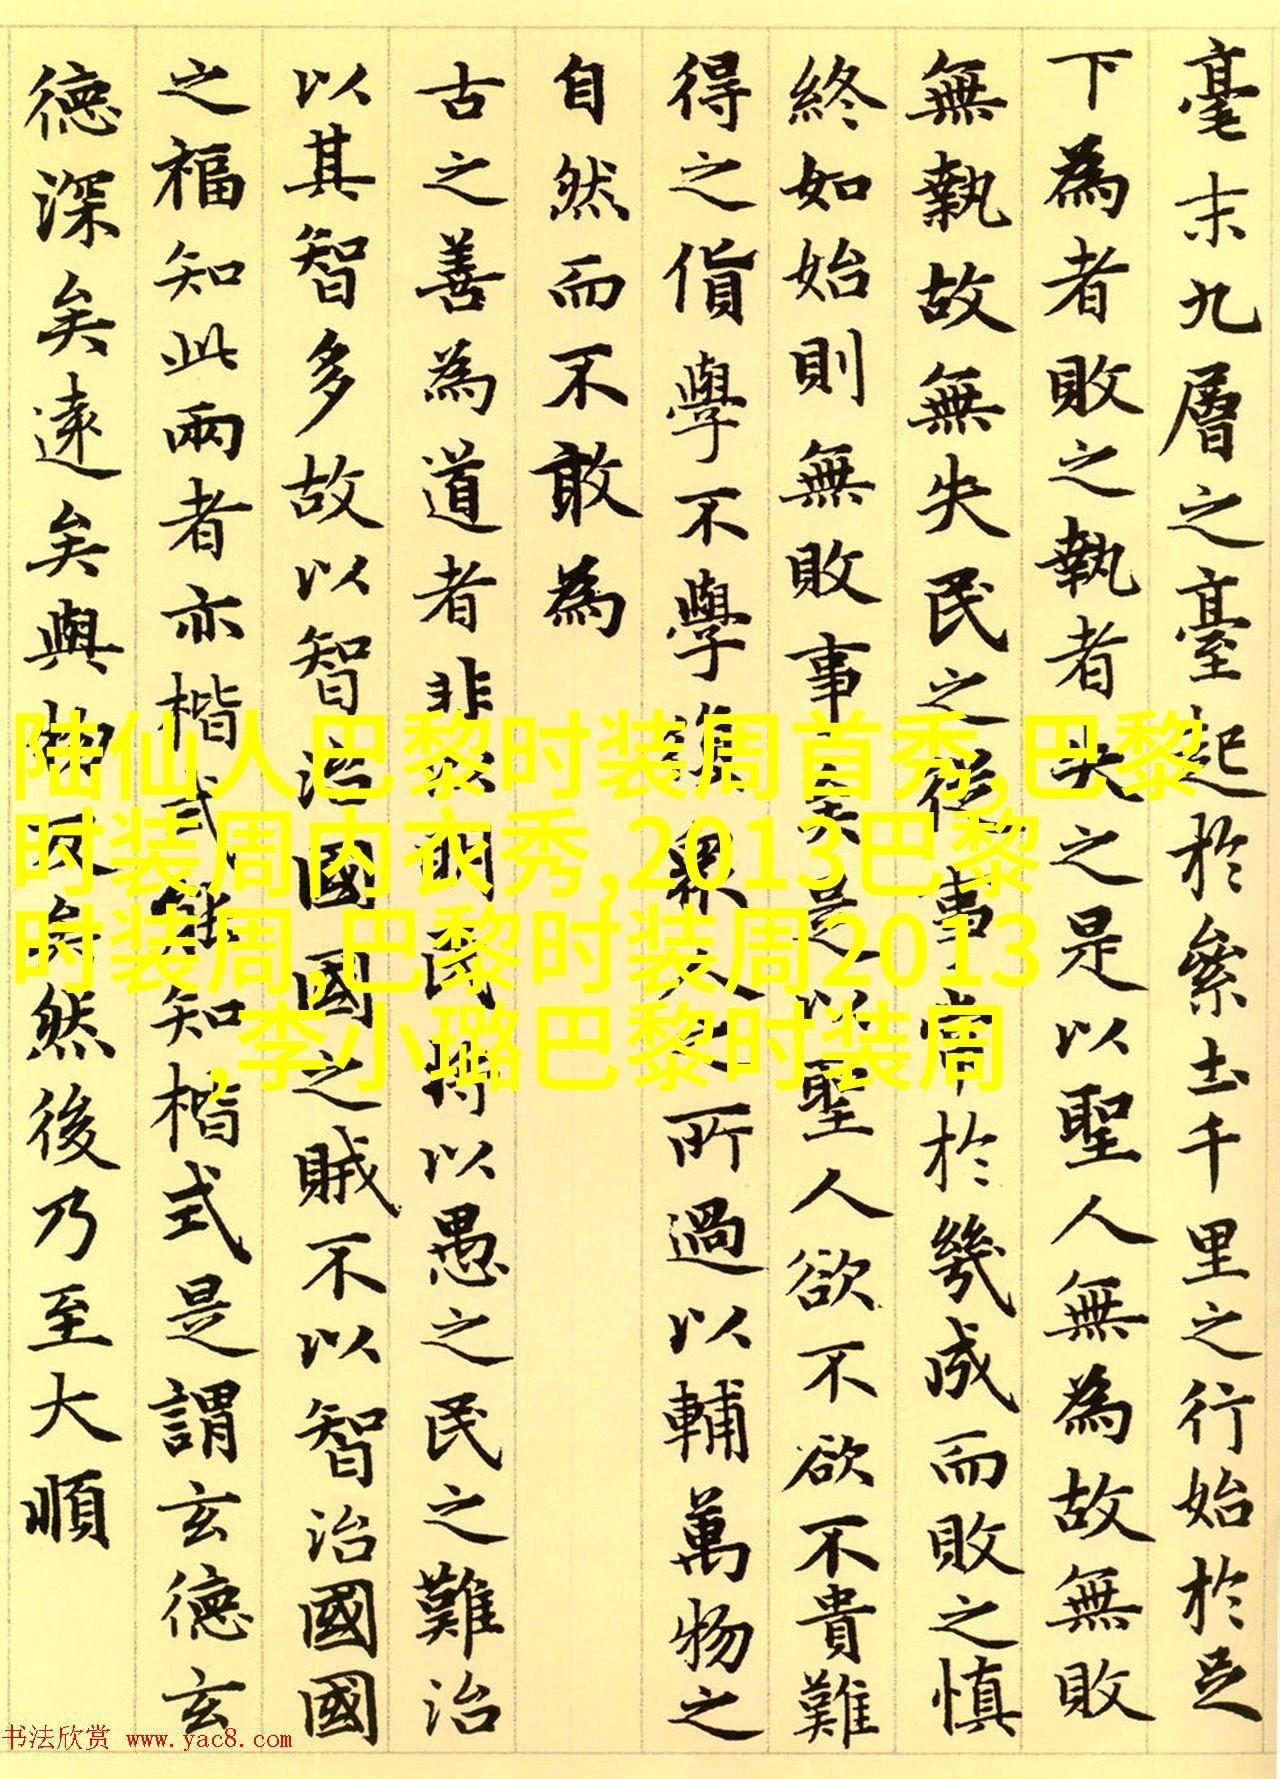 毫末九層之臺起於絫土千里之行始於足
下為者敗之執者失之是以聖人無為故無敗
無執故無失民之從事常於幾成而敗之慎
終如始則無敗事矣是以聖人欲不欲不貴難
得之貨學不學復眾人之所過以輔萬物之
自然而不敢為
古之善為道者非以明民將以愚之民之難治
以其智多故以智治國國之賊不以智治國國
之福知此兩者亦楷式能知楷式是謂玄德玄
德深矣遠矣與物反矣然後乃至大順
陆仙人巴黎时装周首秀,巴黎
时装周内衣秀,2013巴黎
时装周,巴黎时装周2013
,李小璐巴黎时装周
书法欣赏 www.yac8.com